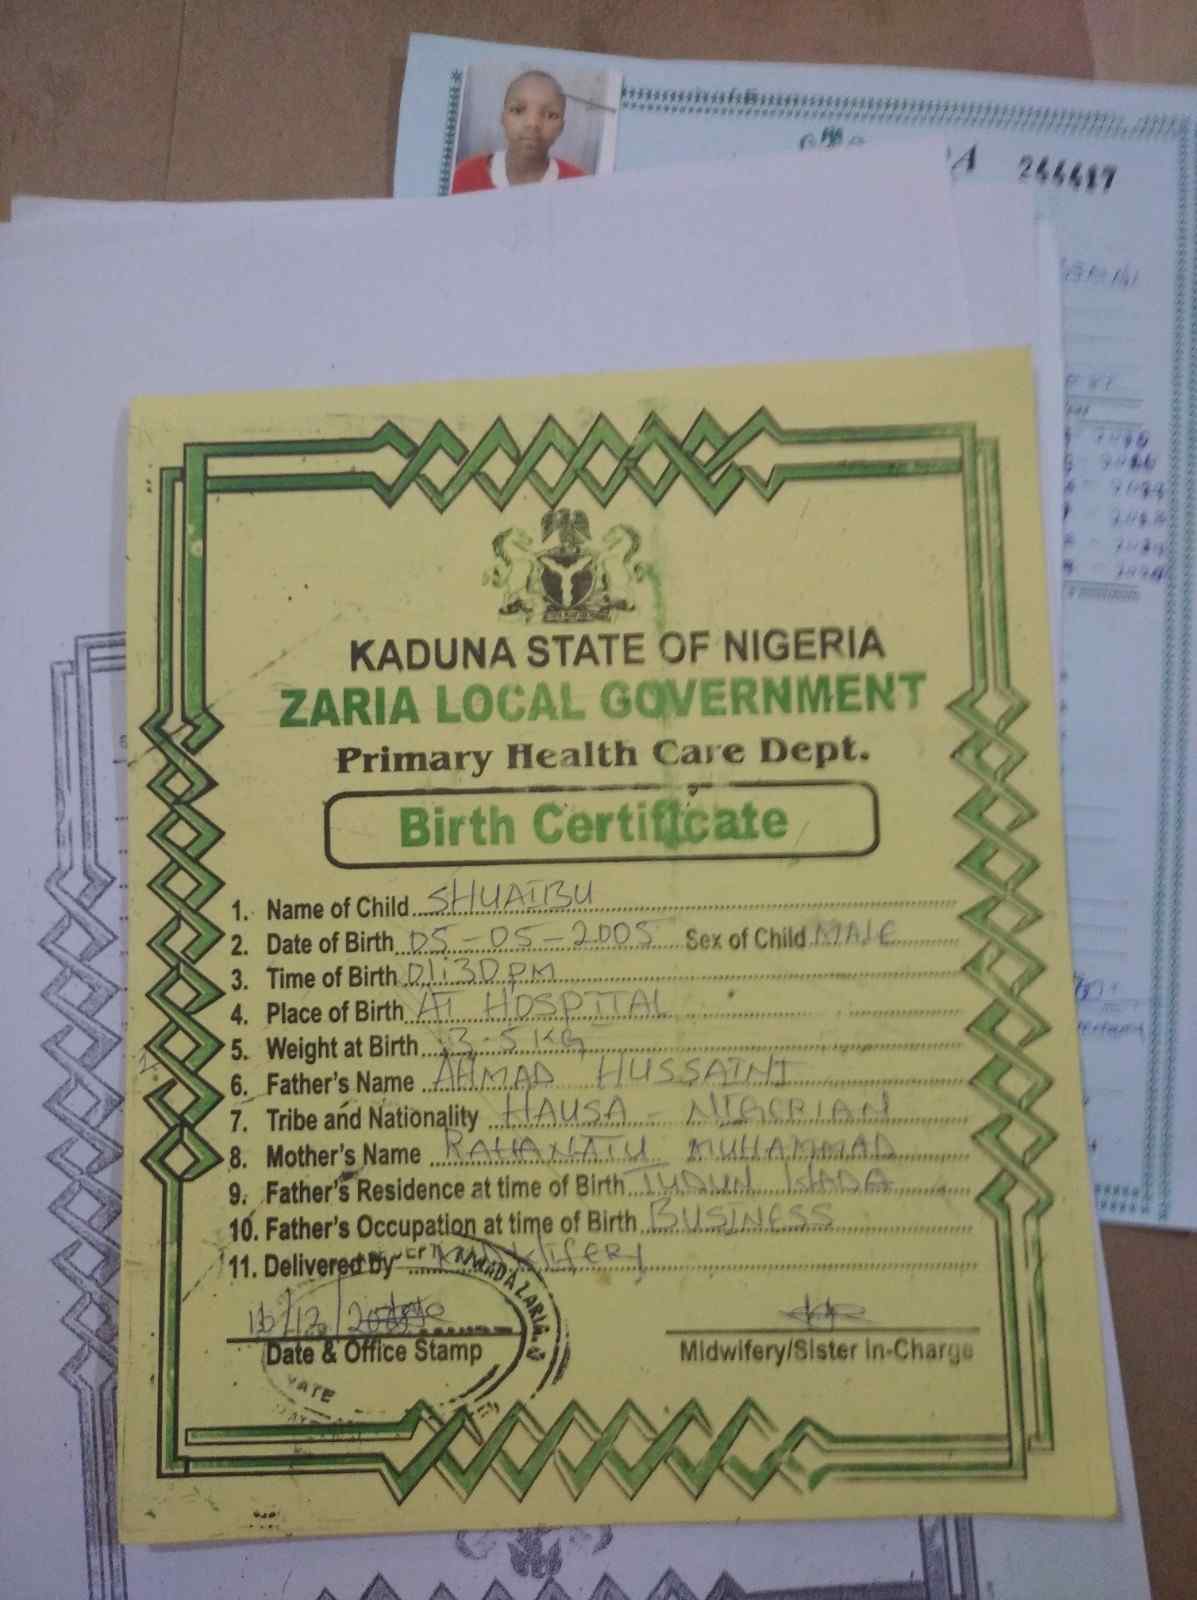 244417
KADUNA STATE OF NIGERIA
ZARIA LOCAL GOVERNMENT
Primary Health Care Dept.
Birth Certificate
1. Name of Child SHUAIBU
2. Date of Birth 05-05-2005 Sex of Child MALE
3. Time of Birth 01:30pm
4. Place of Birth AT HOSPITAL
5. Weight at Birth 3.5KG
6. Father's Name AHMAD HUSSAINI
7. Tribe and Nationality HAUSA - NIGERIAN
8. Mother's Name RAHANATU MUHAMMAD
9. Father's Residence at time of Birth TUDUN WADA
10. Father's Occupation at time of Birth BUSINESS
11. Delivered by
WADA ZARIA
Date & Office Stamp Midwifery/Sister In-Charge